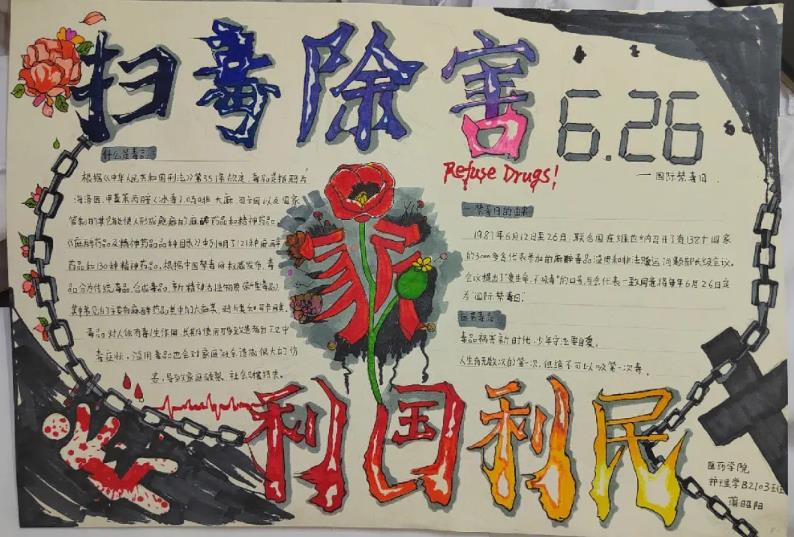 扫毒除害
6.26
Refuse Drugs!
——国际禁毒日
什么是毒品
根据《中华人民共和国刑法》第357条规定，毒品是指鸦片
海洛因、甲基苯丙胺（冰毒）、吗啡、大麻、可卡因以及国家
管制的其它能使人形成瘾癖的麻醉药品和精神药品。
《麻醉药品及精神药品品种目录》中列明了121种麻醉
药品和130种精神药品。根据中国禁毒网权威发布，毒
品分为传统毒品、合成毒品、新精神活性物质（新型毒品）。
其中
毒品对人体有毒
毒症状，滥用毒品也会对家庭社会造成很大的伤
害，导致家庭破裂，社会
禁毒日的由来
1987年6月12日至26日，联合国在维也纳召开了有138个国家
的3000多名代表参加的麻醉品滥用和非法贩运问题部长级会议。
会议提出了“爱生命，不吸毒”的口号，与会代表一致同意将每年6月26日定
为“国际禁毒日”
毒品祸害新时代，少年守志要自尊。
人生有无数次的第一次，但绝不可以吸第一次毒。
利国利民
医药学院
护理学B2103班